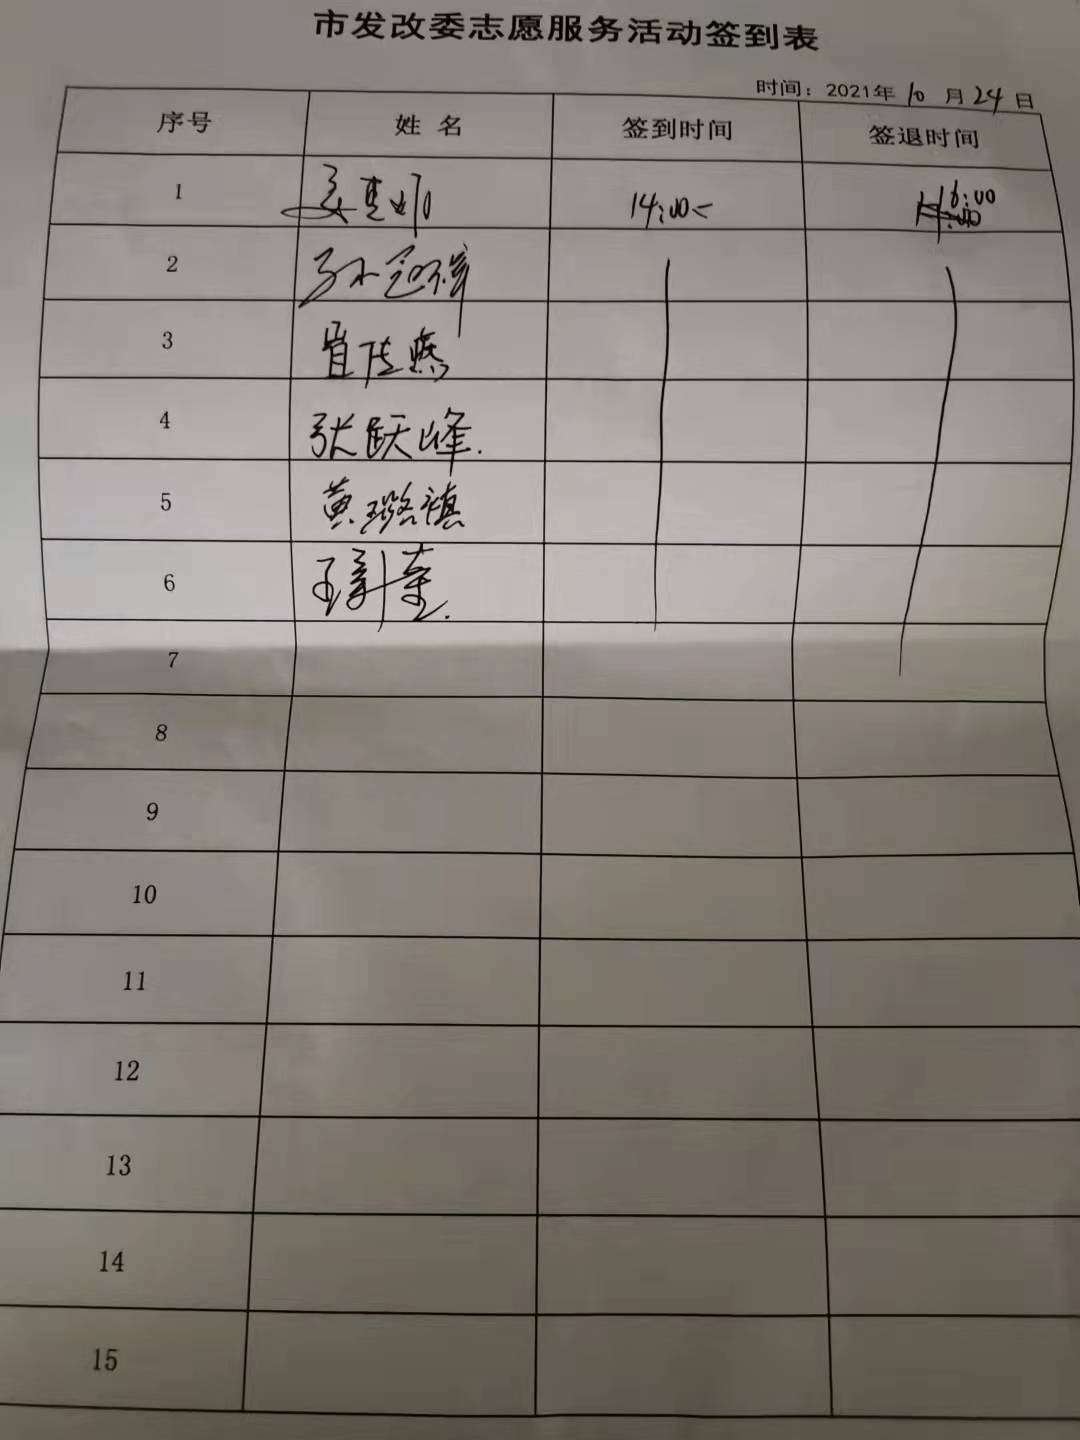 市发改委志愿服务活动签到表
时间：2021年10月24日
序号 姓名 签到时间 签退时间
1 14:00 16:00
2 孙
3 燕
4 张跃峰.
5 黄璐祺
6 王新
7
8
9
10
11
12
13
14
15